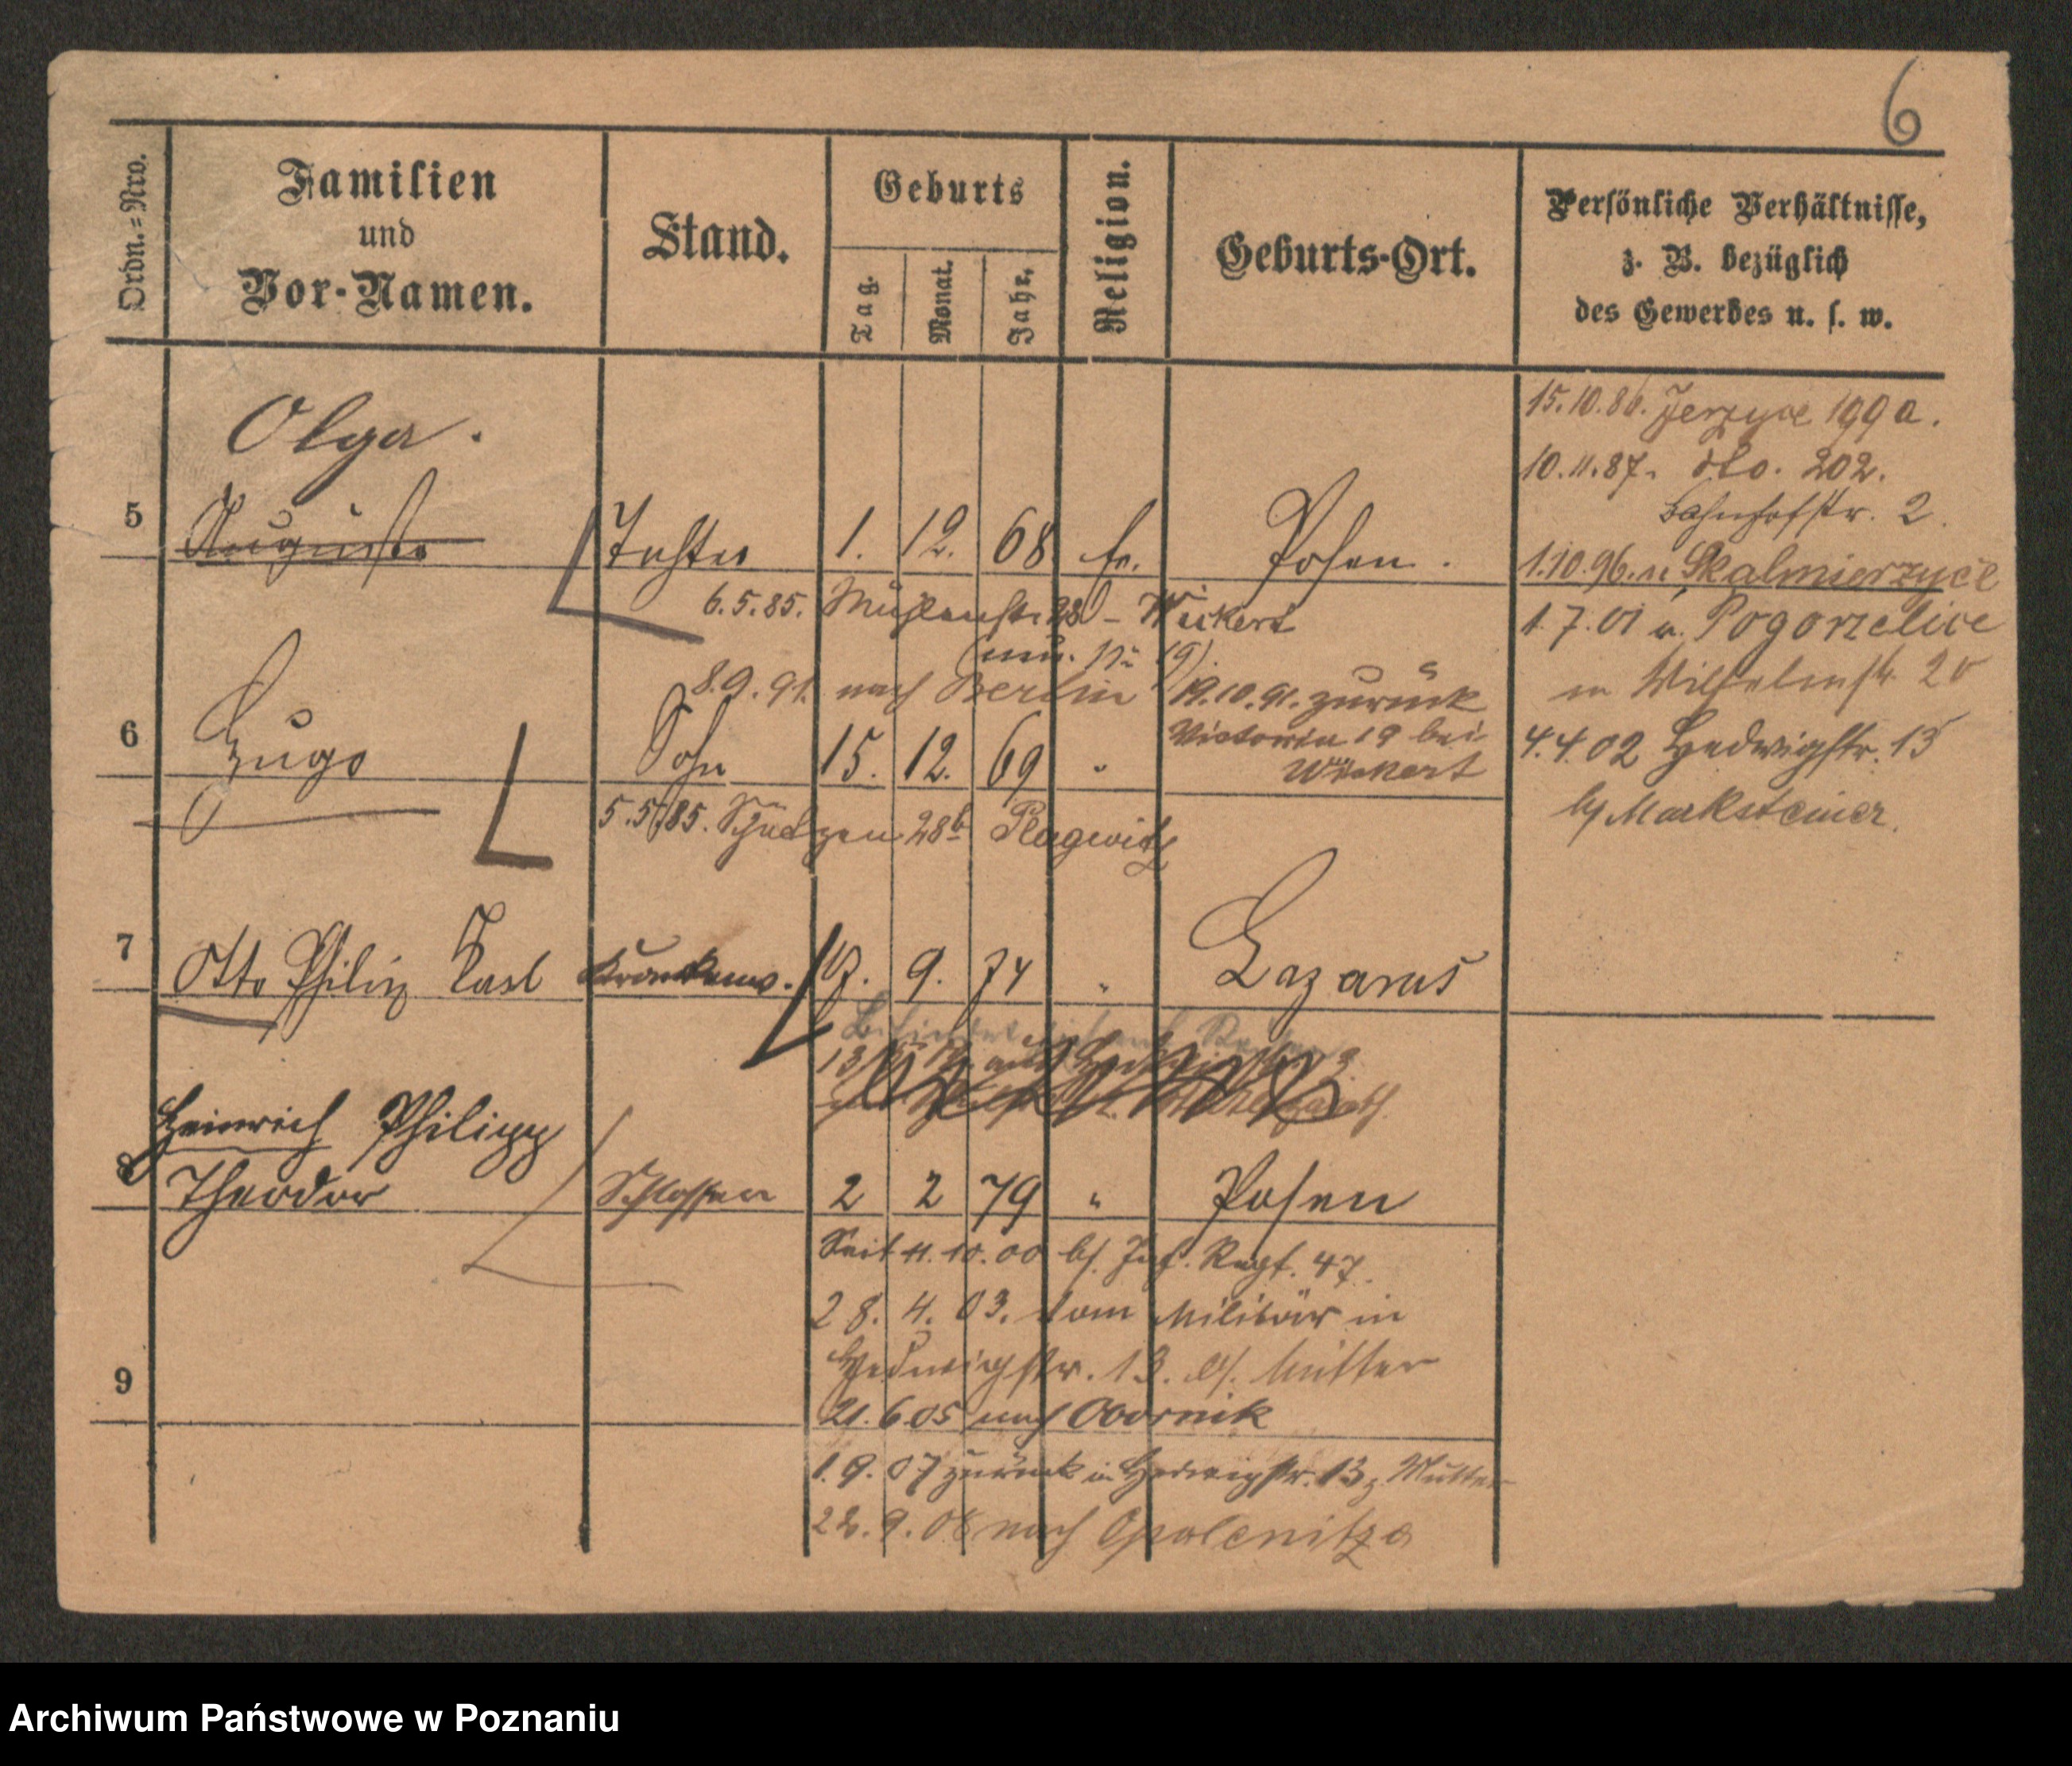 6
Ordn.=Nro.
Familien
und
Vor-Namen.
Stand.
Geburts
Tag.
Monat.
Jahr.
Religion.
Geburts-Ort.
Persönliche Verhältnisse,
z. B. bezüglich
des Gewerbes u. s. w.
Olga.
5 Auguste Tochter 1. 12. 68 Posen.
6.5.85. Mühlenstr. 28 - Weckert
8.9.91. nach Berlin 19.10.91. zurück
Victoria 19 bei
Weckert
6 Hugo Sohn 15. 12. 69 "
5.5.85. Schützen 28b Plagwitz
7 Otto Philip Karl 17. 9. 74 " Lazarus
Heinrich Philipp
8 Theodor Schlosser 2 2 79 " Posen
Seit 11.10.00 bf. Inf. Regt. 47.
28. 4. 03. vom Militär in
Hedwigstr. 13. b/. Mutter
9
21.6.05 nach Obornik
1.9.07 zurück in Hedwigstr. 13 z. Mutter
22.9.08 nach Opalenitza
15.10.86. Jerzyce 199a.
10.11.87. dto. 202.
Bahnhofstr. 2.
1.10.96. n. Skalmierzyce
1.7.01 v. Pogorzelice
in Wilhelmstr. 20
4.4.02 Hedwigstr. 13
b/ Marksteiner.
Archiwum Państwowe w Poznaniu